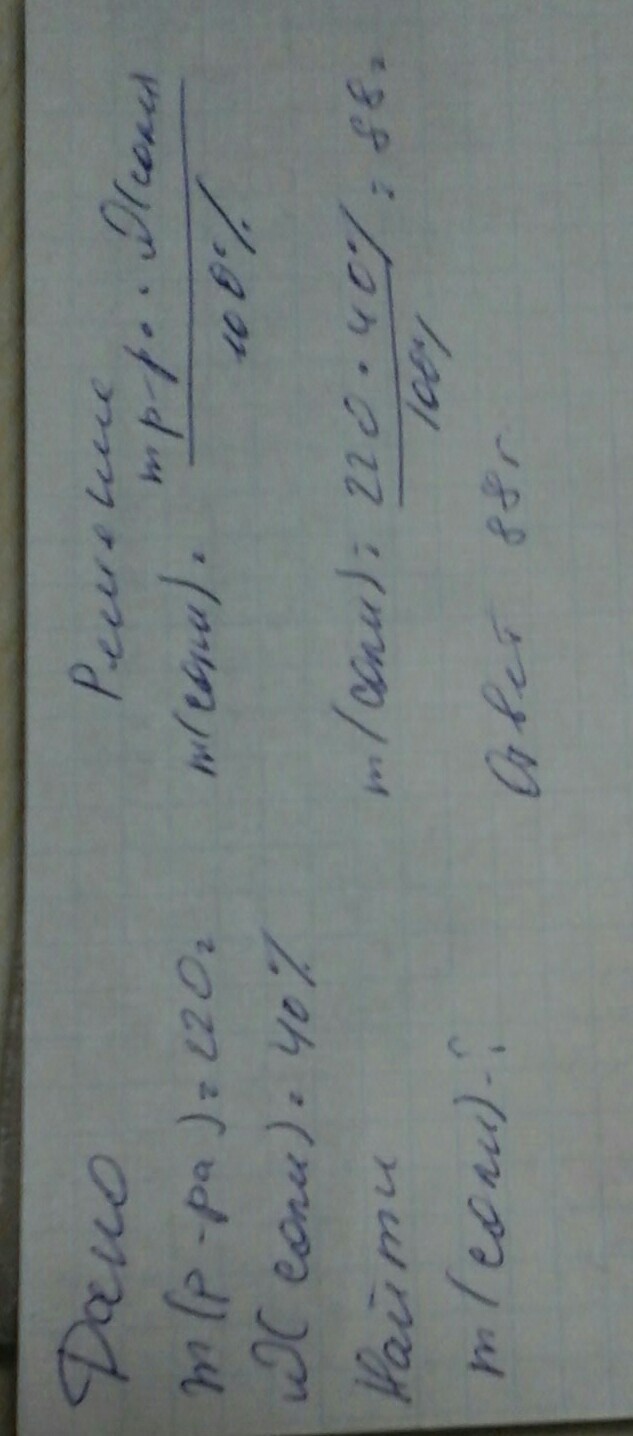 Дано
m(р-ра) = 220г
ω(соли) = 40%
Найти
m(соли)-?
Решение
m(соли) = mр-ра · ω(соли / 100%
m(соли) = 220 · 40% / 100% = 88г
Ответ 88г